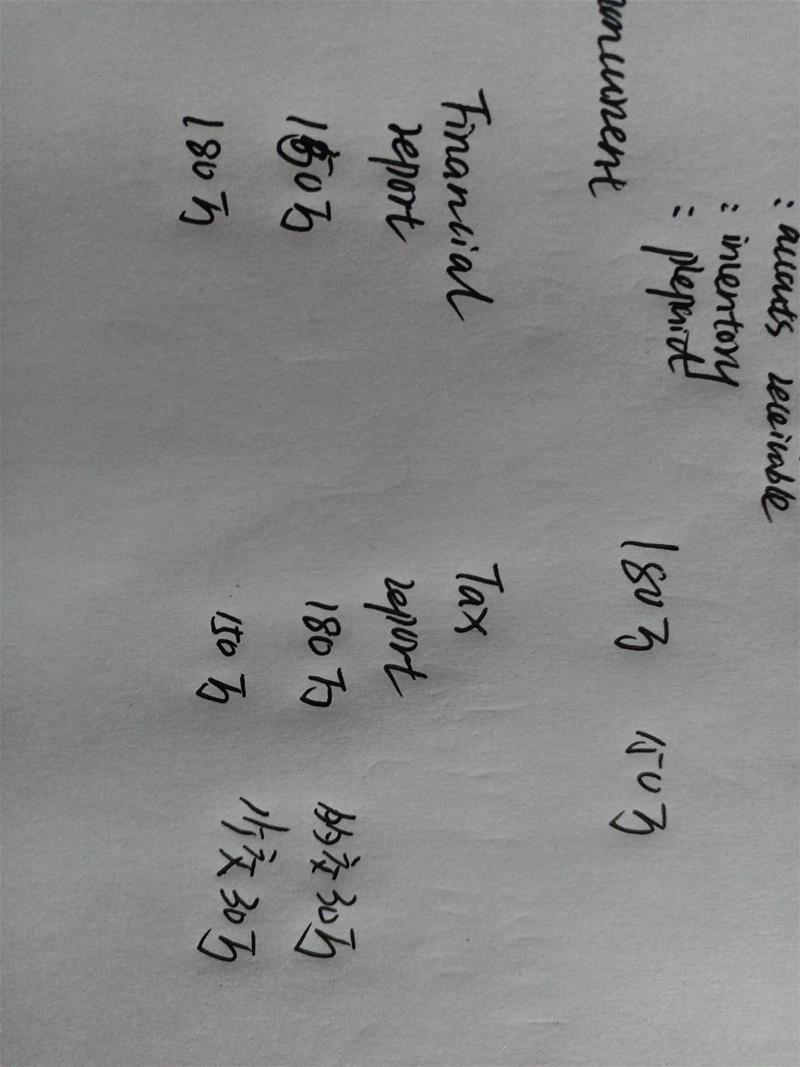 : accouts receivable
: inventory
: prepaid
180万 150万
Financial Tax
report report
150万 180万 多交30万
180万 150万 少交30万